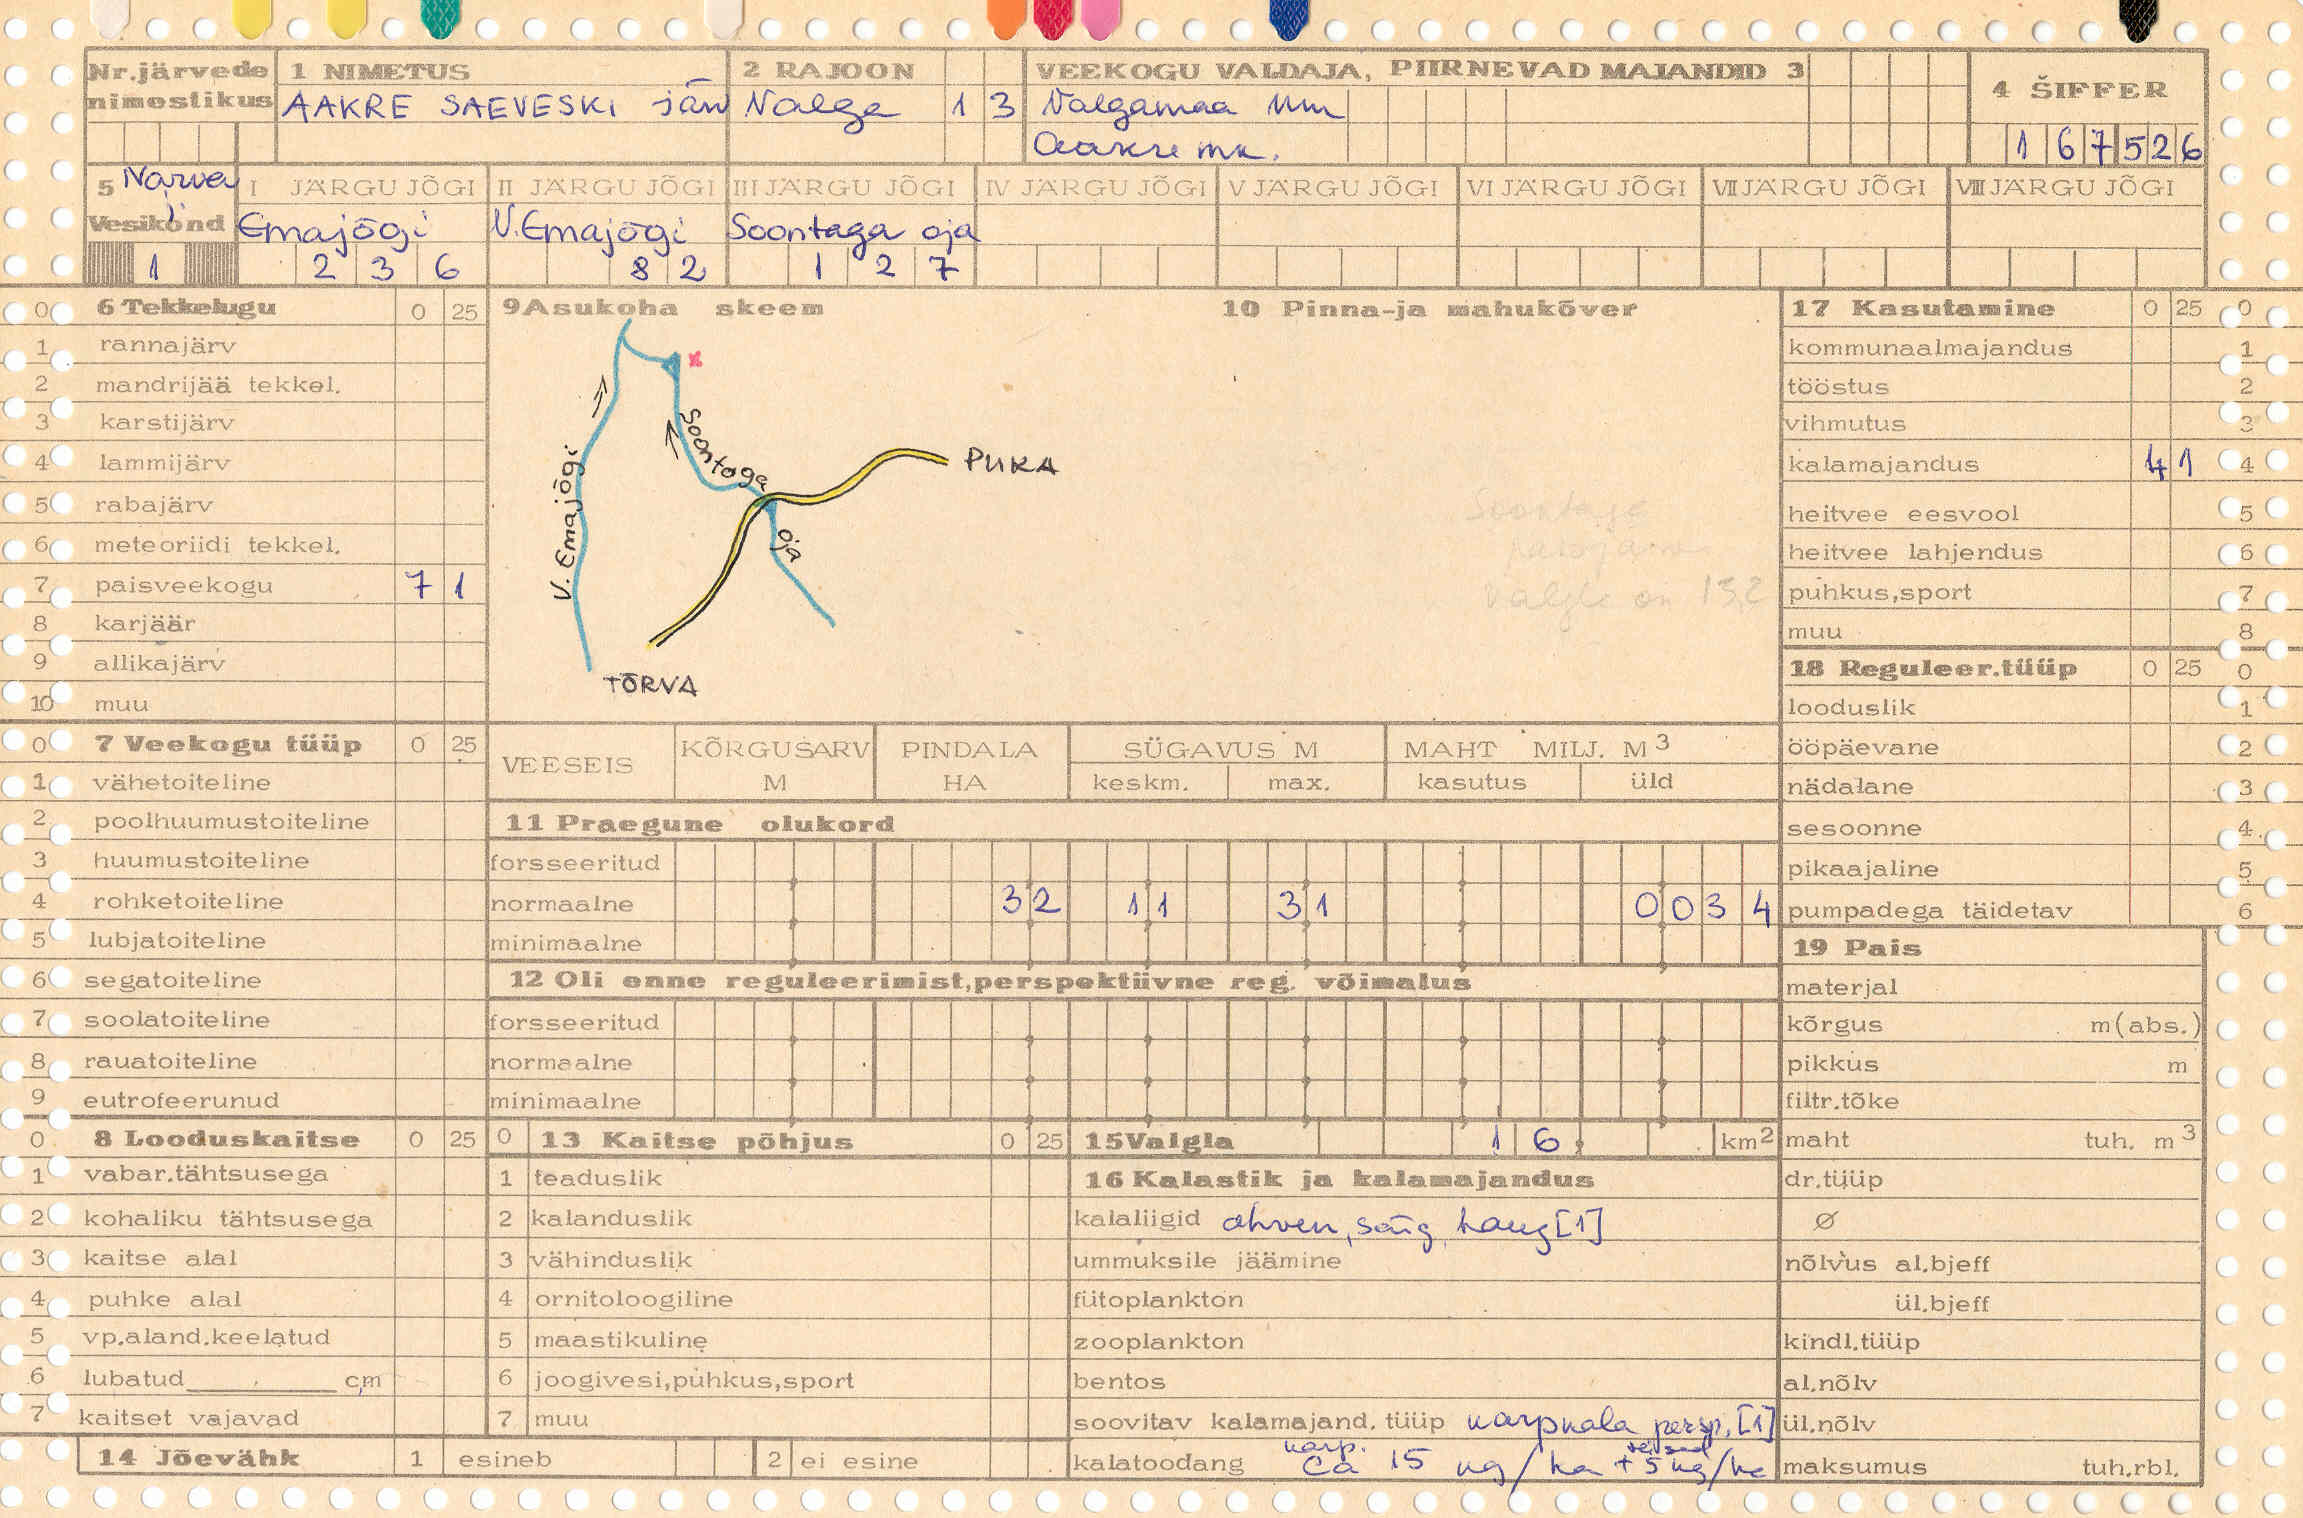 Nr.järvede nimestikus
1 NIMETUS
AAKRE SAEVESKI järv
2 RAJOON
Valga 1 3
VEEKOGU VALDAJA, PIIRNEVAD MAJANDID 3
Valgamaa Mm
Aakre mk.
4 ŠIFFER
1 6 7 5 2 6
5 Narva j.
Vesikond
1
I JÄRGU JÕGI
Emajõgi
2 3 6
II JÄRGU JÕGI
V.Emajõgi
8 2
III JÄRGU JÕGI
Soontaga oja
1 2 7
IV JÄRGU JÕGI
V JÄRGU JÕGI
VI JÄRGU JÕGI
VII JÄRGU JÕGI
VIII JÄRGU JÕGI
0 6 Tekkelugu 0 25
1 rannajärv
2 mandrijää tekkel.
3 karstijärv
4 lammijärv
5 rabajärv
6 meteoriidi tekkel.
7 paisveekogu 7 1
8 karjäär
9 allikajärv
10 muu
9 Asukoha skeem
V. Emajõgi
Soontaga oja
PUKA
TÕRVA
10 Pinna-ja mahukõver
Soontaga
Valgla on 13,2
17 Kasutamine 0 25 0
kommunaalmajandus 1
tööstus 2
vihmutus 3
kalamajandus 4 1 4
heitvee eesvool 5
heitvee lahjendus 6
puhkus,sport 7
muu 8
18 Reguleer.tüüp 0 25 0
looduslik 1
ööpäevane 2
nädalane 3
sesoonne 4
pikaajaline 5
pumpadega täidetav 6
0 7 Veekogu tüüp 0 25
1 vähetoiteline
2 poolhuumustoiteline
3 huumustoiteline
4 rohketoiteline
5 lubjatoiteline
6 segatoiteline
7 soolatoiteline
8 rauatoiteline
9 eutrofeerunud
VEESEIS
KÕRGUSARV M
PINDALA HA
SÜGAVUS M
keskm. max.
MAHT MILJ. M3
kasutus üld
11 Praegune olukord
forsseeritud
normaalne 3 2 1 1 3 1 0 0 3 4
minimaalne
12 Oli enne reguleerimist,perspektiivne reg. võimalus
forsseeritud
normaalne
minimaalne
19 Pais
materjal
kõrgus m(abs.)
pikkus m
filtr.tõke
maht tuh. m3
dr.tüüp
Ø
nõlvus al.bjeff
ül.bjeff
kindl.tüüp
al.nõlv
ül.nõlv
maksumus tuh.rbl.
0 8 Looduskaitse 0 25
1 vabar.tähtsusega
2 kohaliku tähtsusega
3 kaitse alal
4 puhke alal
5 vp.aland.keelatud
6 lubatud cm
7 kaitset vajavad
0 13 Kaitse põhjus 0 25
1 teaduslik
2 kalanduslik
3 vähinduslik
4 ornitoloogiline
5 maastikuline
6 joogivesi,puhkus,sport
7 muu
15 Valgla 1 6, km2
16 Kalastik ja kalamajandus
kalaliigid ahven, särg, haug [1]
ummuksile jäämine
fütoplankton
zooplankton
bentos
soovitav kalamajand. tüüp karpkala persp. [1]
kalatoodang karp. ca 15 kg/ha + 5 kg/ha
14 Jõevähk 1 esineb 2 ei esine